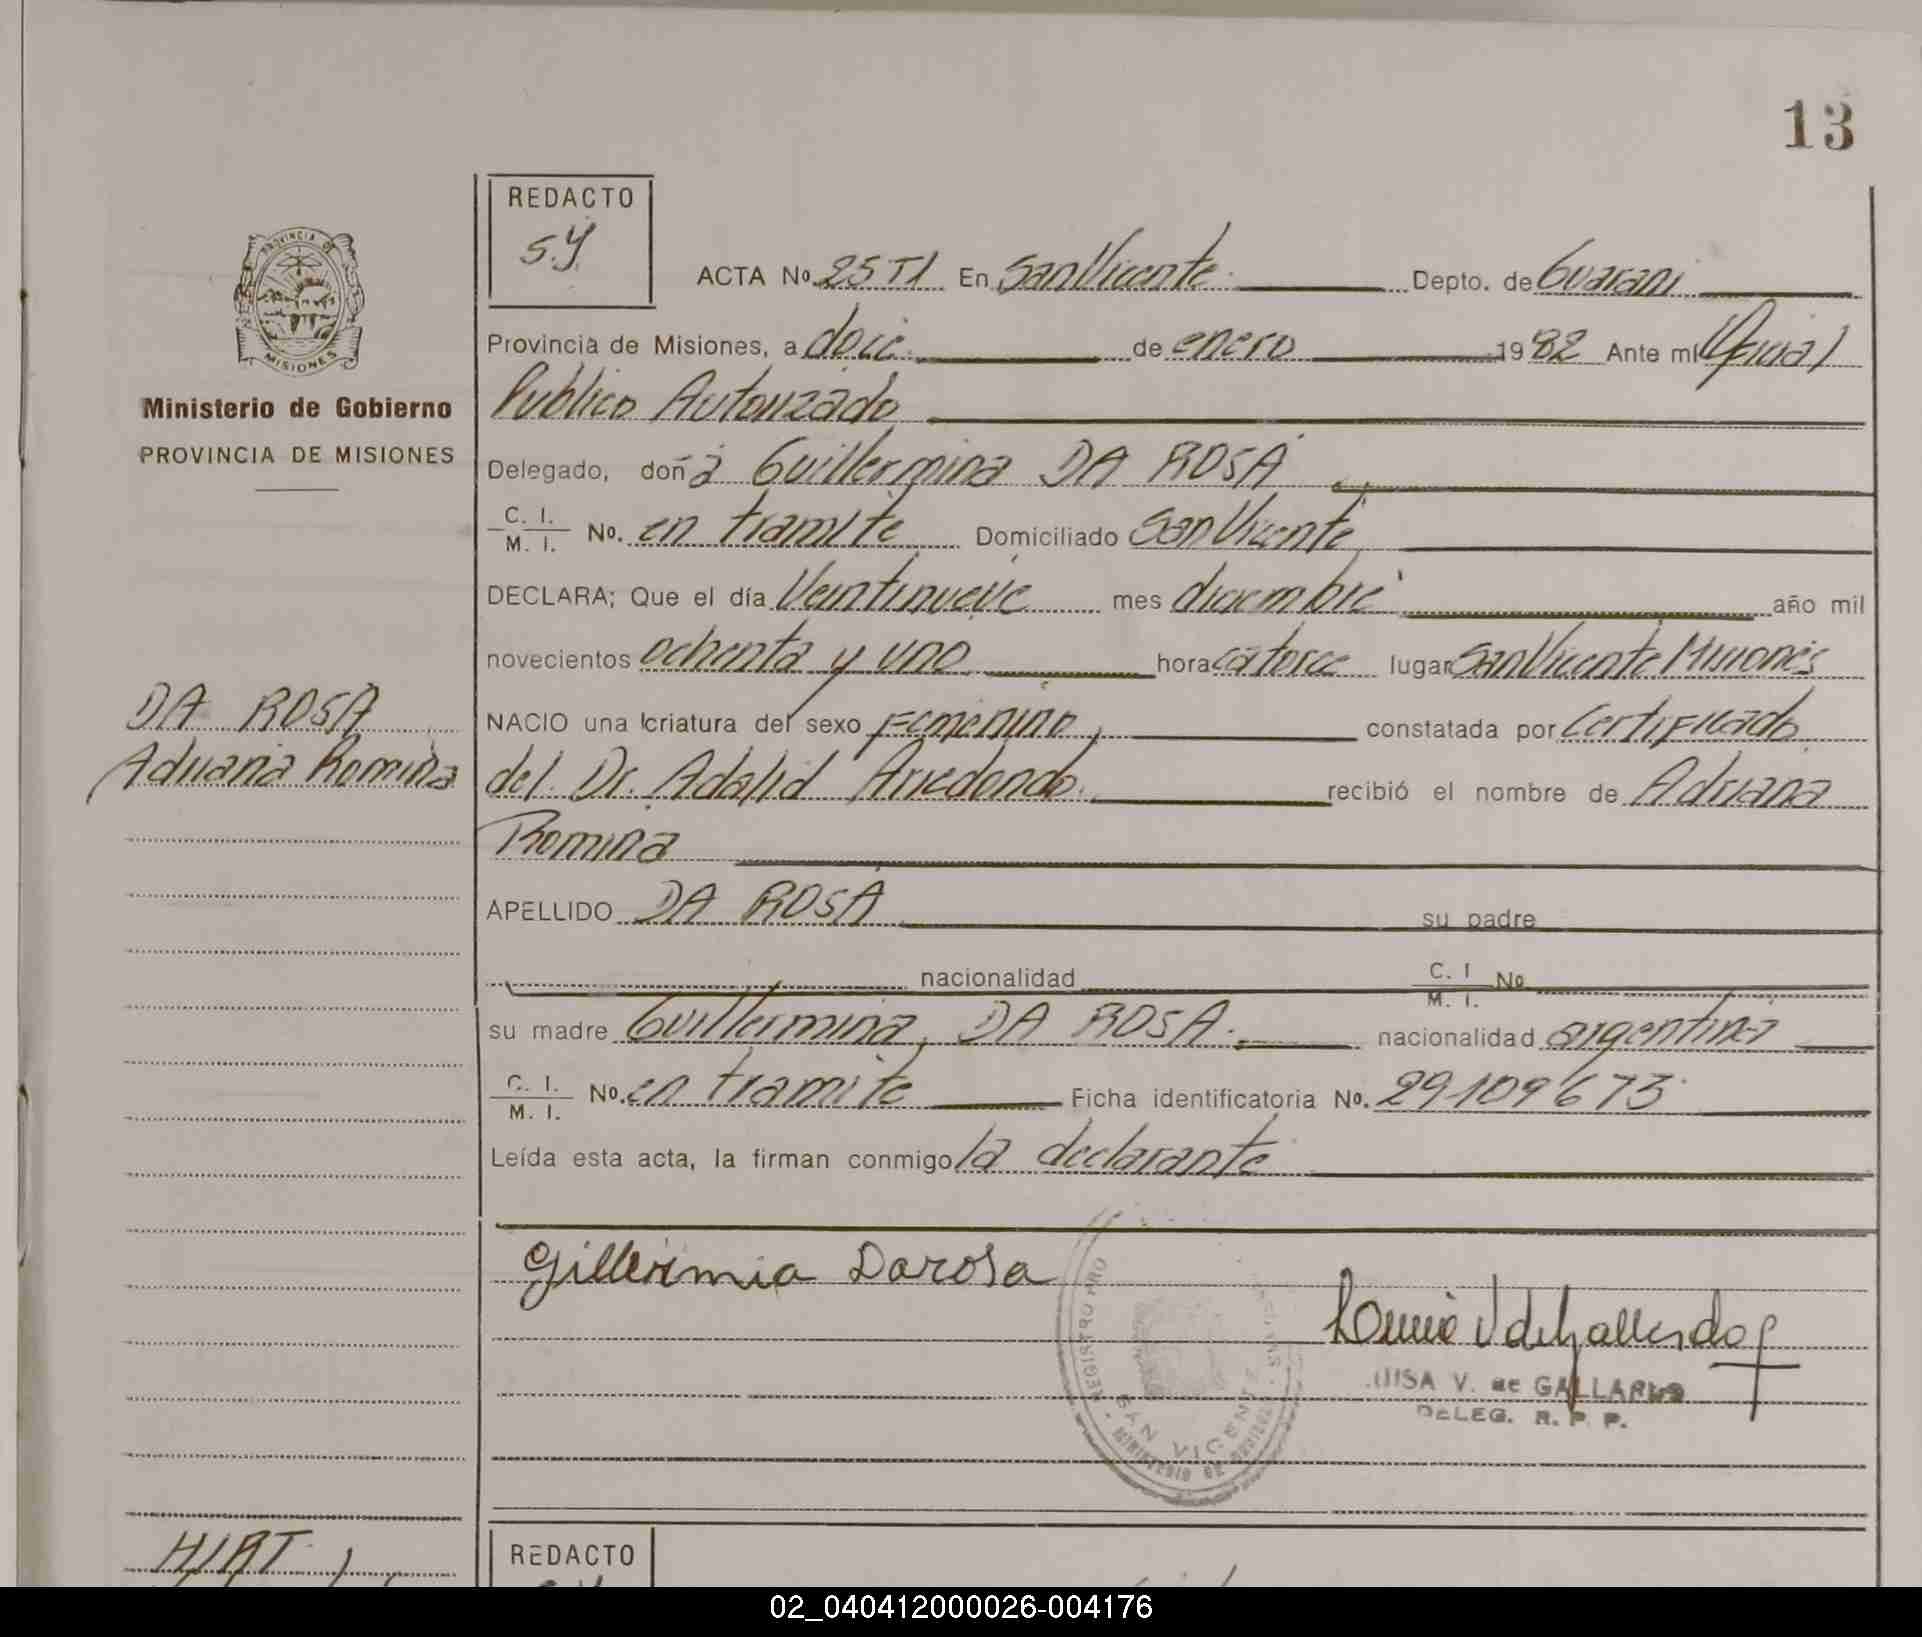 13
REDACTO
S.Y.
ACTA No. 25 T1 En San Vicente Depto. de Guarani
Provincia de Misiones, a doce de enero 1982 Ante mí Oficial
Publico Autorizado
Ministerio de Gobierno
PROVINCIA DE MISIONES
Delegado, doña Guillermina DA ROSA
C. I.
M. I. No. en tramite Domiciliado San Vicente
DECLARA; Que el día Veintinueve mes diciembre año mil
novecientos ochenta y uno hora catorce lugar San Vicente Misiones
DA ROSA
Adriana Romina
NACIO una criatura del sexo Femenino, constatada por Certificado
del Dr. Adalid Arredondo. recibió el nombre de Adriana
Romina
APELLIDO DA ROSA su padre
nacionalidad C. I. No.
M. I.
su madre Guillermina DA ROSA. nacionalidad argentina
C. I.
M. I. No. en tramite Ficha identificatoria No. 29109673
Leída esta acta, la firman conmigo la declarante
Gillerimia Darosa
REGISTRO PRO
SAN VICENTE
MINISTERIO DE
LUISA V. de GALLARDO
DELEG. R. P. P.
HIRT
REDACTO
02_040412000026-004176